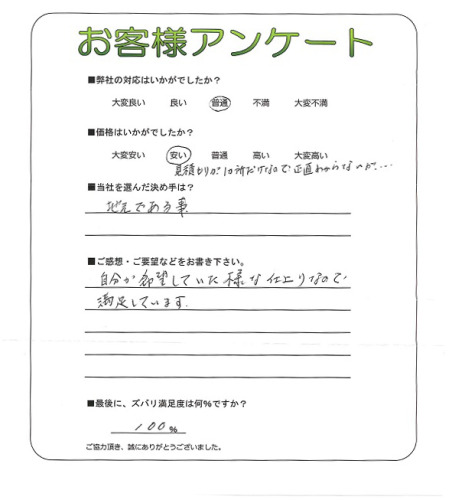 お客様アンケート
■弊社の対応はいかがでしたか？
大変良い 良い 普通 不満 大変不満
■価格はいかがでしたか？
大変安い 安い 普通 高い 大変高い
見積もりが1ヶ所だけなので正直わからなのだ…
■当社を選んだ決め手は？
地元である事
■ご感想・ご要望などをお書き下さい。
自分が希望していた様な仕上りなので
満足しています。
■最後に、ズバリ満足度は何%ですか？
100%
ご協力頂き、誠にありがとうございました。